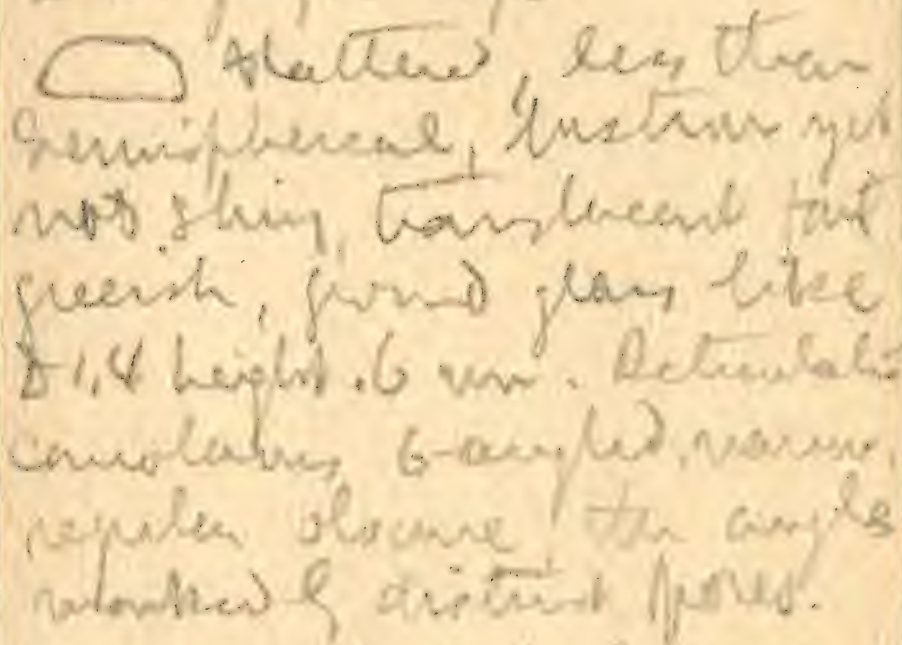 flattened, less than
hemispherical, lustrous yet
not shiny, translucent
greenish, ground glass like
D 1.4 height .6 mm. Reticulations
6-angled, narrow,
regular obscure the angles
marked by distinct pores.